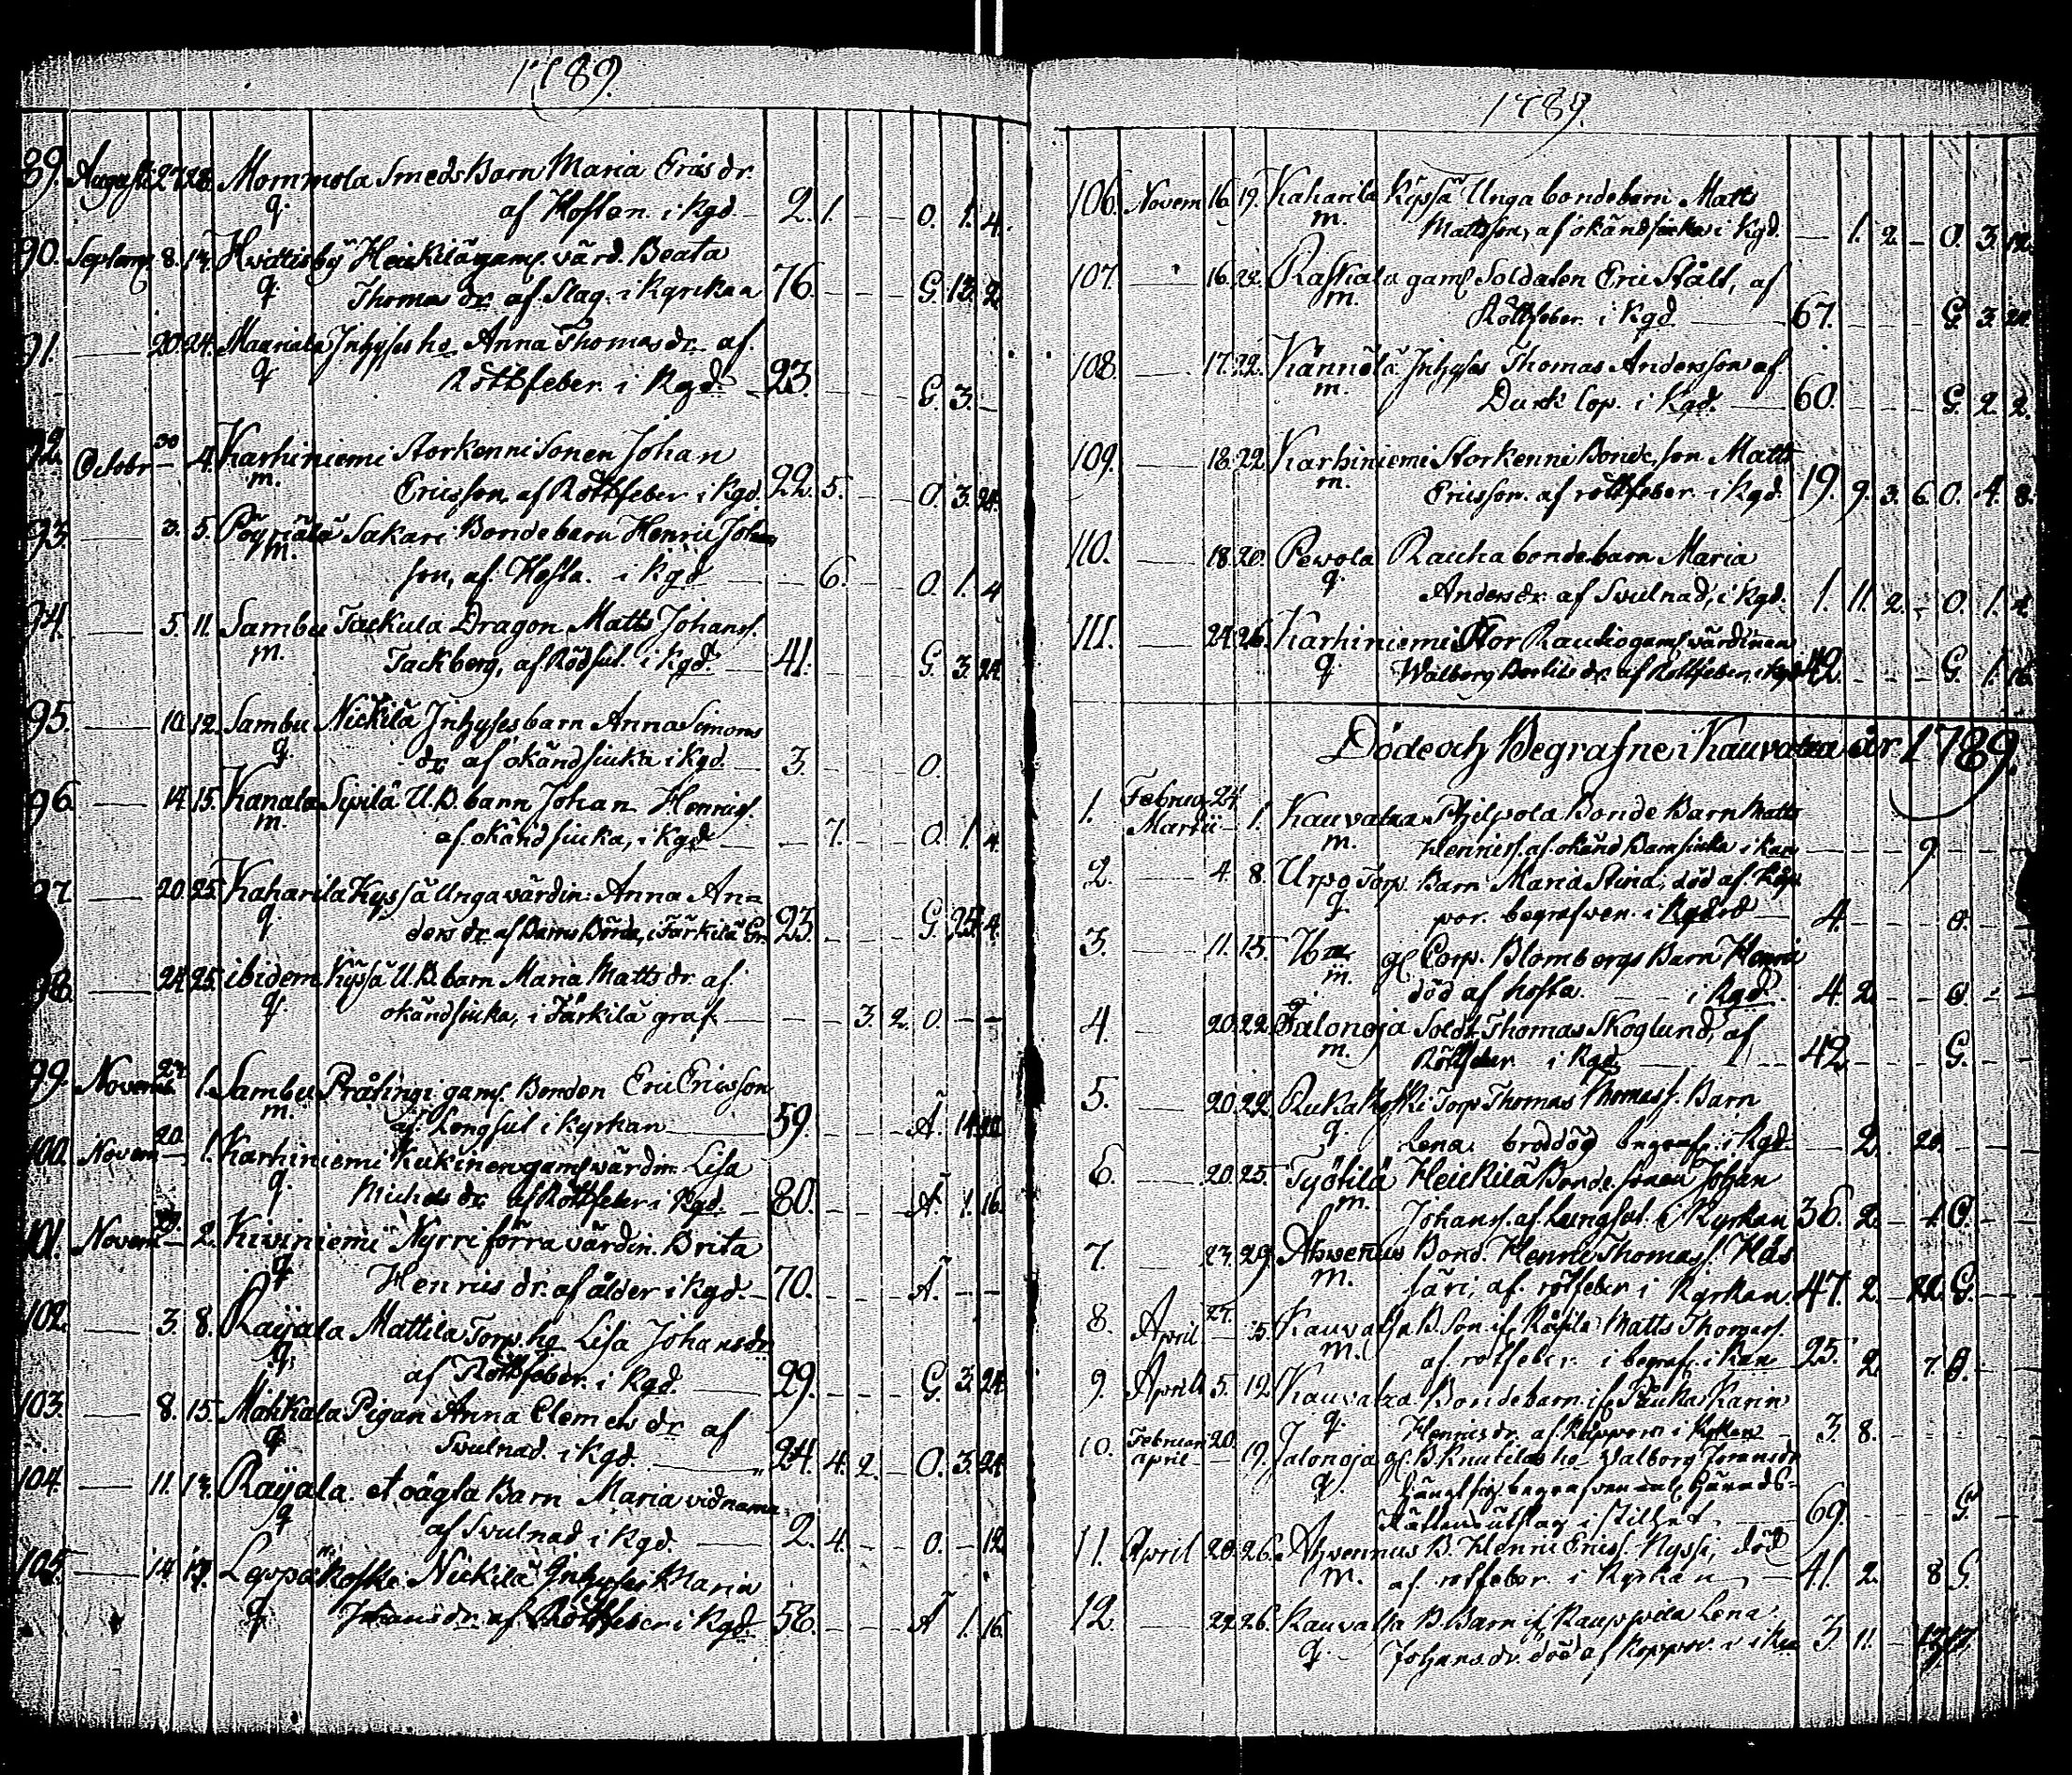 1789.
89. Augusti 27 28. Mommola Smeds Barn Maria Erics dr.
q. af Hosten. i Kgd. 2. 1. O. 1. 4.
90. Septemb 8. 13. Hvittisby Heickilä gaml. värd. Beata
q. Thomas dr. af Slag. i Kyrckan 76. G. 13. 2
91. 20. 24. Mauriala Inhyses ho. Anna Thomas dr. af
q Rötfeber. i Kgd. 23. G. 3.
92. Octobr 30 4. Karhiniemi Storkenni Sonen Johan
m. Ericsson. af Rötfeber. i Kgd. 22. 5. O. 3. 24.
93. 3. 5. Pöyriälä Sakari Bondebarn Henric Johans
m. son, af Hosta. i Kgd 6. O. 1. 4
94. 5. 11. Sambu Tackula Dragon Matts Johanss.
m. Tackberg, af Rödsut. i Kgd. 41. G. 3. 24.
95. 10. 12. Sambu Nickilä Inhyses barn Anna Simons
q dr. af okänd siuka i Kgd. 3. O.
96. 14. 15. Kanala Sipilä U. B. barn Johan Henrics.
m. af okänd siuka, i Kgd 7. O. 1. 4.
97. 20. 25. Kaharila Kyssä Unga värdin. Anna An=
q ders dr. af Barns Börda, i Tärkilä Gr. 23. G. 25. 4.
98. 24. 25. ibidem Kyssä U. B. barn Maria Matts dr. af
q. okänd siuka, i Tärkilä graf 3. 2. O.
99. Novemb 1. Sambu Pråtingi gaml. Bonden Eric Ericsson
m. af Lungsut i Kyrkan 59. Å. 14.
100. Novem 20. 1. Karhiniemi Kukinen gaml värdin. Lisa
q. Michels dr. af Rötfeber i Kgd. 80. Å. 1. 16.
101. Novem 2. Kiviniemi Nyrri förra värdin. Brita
q Henrics dr. af ålder i Kgd. 70. Å.
102. 3. 8. Raijala Mattila Torp. ho. Lisa Johans dr
q. af Rötfeber. i Kgd. 29. G. 3. 24.
103. 8. 15. Mäkkälä Pigan Anna Clemets dr af
q Svulnad. i Kgd. 24. 4. 2. O. 3. 24.
104. 11. 13. Raijala. et oägta Barn Maria vid namn
q af Svulnad i Kgd. 2. 4. O. 12.
105. 14. 17. Leppäkoski Nickilä Inhyses Maria
q. Johans dr. af Rötfeber i Kgd. 58. Å 1. 16.
1789.
106. Novem 16. 19. Kaharila Kyssä Unga bondebarn Matts
m. Mattsson, af okänd siuka i Kgd. 1. 2. O. 3. 12.
107. 16. 22. Raskala gaml Soldaten Eric Stålt, af
m. Rötfeber i Kgd 67. G. 3. 24.
108. 17. 22. Kännölä Inhyses Thomas Andersson af
m. Durk lop. i Kgd. 60. G. 2. 2.
109. 18. 22. Karhiniemi Storkenni Bonde, son Matts
m. Ericsson. af rötfeber. i Kgd. 19. 9. 3. 6. O. 4. 8.
110. 18. 20. Pewola Rauha bondebarn Maria
q. Anders dr. af Svulnad, i Kgd. 1. 11. 2. O. 1. 4.
111. 24. 26. Karhiniemi Stor Rautio gaml. värdinnan
q Walborg Bertils dr. af Rötfeber, i Kgd. 42. G. 1. 16.
Döde och Begrafne i Kauvatza år 1789.
1. Februar 24. Martii 1. Kauvatza Philpola Bonde Barn Matts
m. Henrics. af okänd Barnsiuka i Kau 9.
2. 4. 8. Urpo Torp. Barn Maria Stina, död af Kop
q. por. begrafven i Kgård 4. O.
3. 11. 15. gl Corp. Blombergs Barn Henric
m. död af hosta. i Kgd. 4. 2. O
4. 20. 22. Jalonoja Sold. Thomas Skoglund, af
m. Rötfeber i Kgd. 42. G.
5. 20. 22. Rukakoski Torp Thomas Thomass. Barn
q. Lena bråddög begraf. i Kgd. 2. 20.
6. 20. 25. Työtilä Heickilä Bonde sonen Johan
m. Johanss. af Lungsut. i Kyrkan 36. 2. 1. O.
7. 23. 29. Ahvenus Bond. Henric Thomass. Käs
m. säri, af. rötfeber i Kyrkan. 47. 2. G.
8. April 5. Kauvatsa B. Son if. Matts Thomass.
m. af rötfeber. i begraf. i Kau 25. 2. 7. O.
9. April 5. 12. Kauvatza Bondebarn if. Karin
q. Henrics dr. af Koppor i Kyrkan 3 8.
10. Februari 20. april 19. Jalonoja gl. B. Knutilas ho Walborg Jörans dr
q. begrafven enl. Härads=
Rättens utslag i stillhet. 69. G.
11. April 20. 26. Ahvennus B. Henric Ericss. Kyssi, död
m. af rötfeber i Kyrkan 41. 2. 8 G.
12. 22. 26. Kauvatsa B. Barn if. Lena
q. Johans dr. död af koppor i Kau 3. 11.